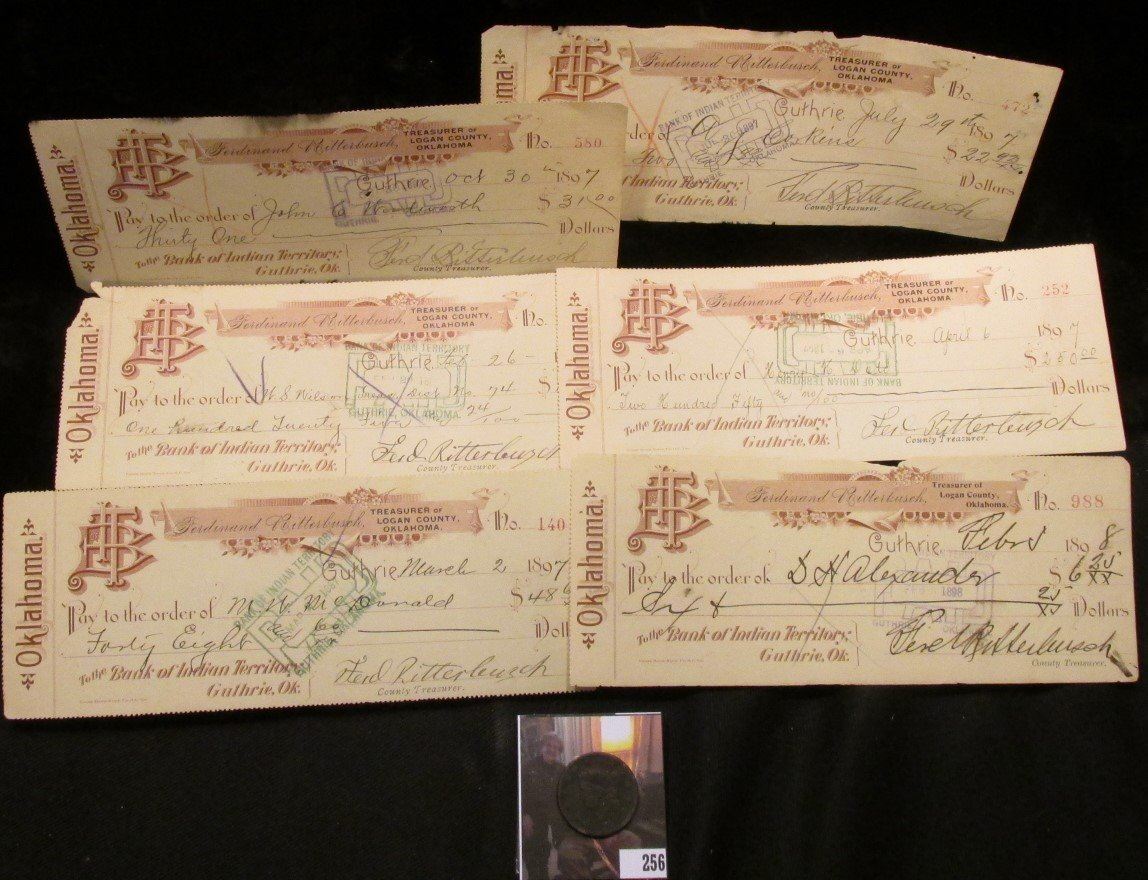 Oklahoma.
Ferdinand Ritterbusch,
TREASURER OF
LOGAN COUNTY,
OKLAHOMA.
No.
Guthrie July 29th 1897
order of
$22
Two
Dollars
Indian Territory,
Guthrie, Ok.
Ferd Ritterbusch
County Treasurer.
BANK OF INDIAN TERRITORY
Oklahoma.
Ferdinand Ritterbusch,
TREASURER OF
LOGAN COUNTY,
OKLAHOMA.
No. 580
Guthrie, Oct 30th 1897
Pay to the order of John $31.00
Thirty One Dollars
To the Bank of Indian Territory,
Guthrie, Ok.
Ferd Ritterbusch
County Treasurer.
Oklahoma.
Ferdinand Ritterbusch,
TREASURER OF
LOGAN COUNTY,
OKLAHOMA.
No.
Guthrie 26
Pay to the order of W. S. Wilson Treas Dist No. 74
One Hundred Twenty
To the Bank of Indian Territory,
Guthrie, Ok.
Ferd Ritterbusch
County Treasurer.
GUTHRIE, OKLAHOMA
Ferdinand Ritterbusch,
TREASURER OF
LOGAN COUNTY,
OKLAHOMA
No. 252
Oklahoma.
Guthrie April 6 1897
Pay to the order of $250.00
Two Hundred Fifty and no/00 Dollars
To the Bank of Indian Territory,
Guthrie, Ok.
Ferd Ritterbusch
County Treasurer.
BANK OF INDIAN TERRITORY
Oklahoma.
Ferdinand Ritterbusch,
TREASURER OF
LOGAN COUNTY,
OKLAHOMA.
No. 140
Guthrie March 2 1897
Pay to the order of M. W. McDonald $48
Forty Eight and Doll
To the Bank of Indian Territory,
Guthrie, Ok.
Ferd Ritterbusch
County Treasurer.
BANK OF INDIAN TERRITORY
GUTHRIE, OKLAHOMA
Oklahoma.
Ferdinand Ritterbusch,
Treasurer of
Logan County,
Oklahoma.
No. 988
Guthrie 1898
Pay to the order of D H Alexander $6 25/xx
Six & 25/xx Dollars
To the Bank of Indian Territory,
Guthrie, Ok.
Ferd Ritterbusch
County Treasurer.
1898
GUTHRIE
256